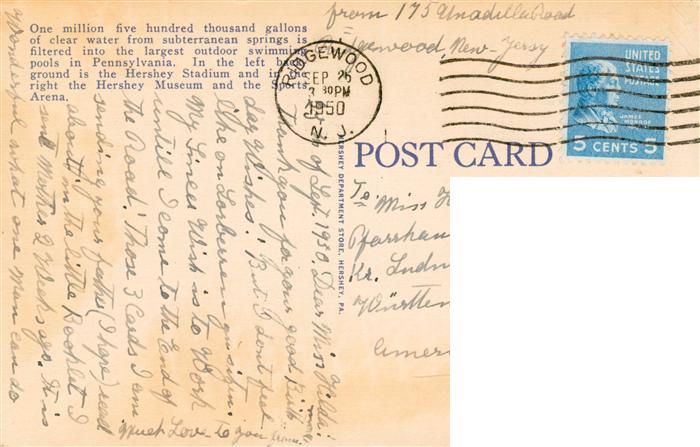 One million five hundred thousand gallons
of clear water from subterranean springs is
filtered into the largest outdoor swimming
pools in Pennsylvania. In the left back-
ground is the Hershey Stadium and in the
right the Hershey Museum and the Sports
Arena.
from 175 Unadilla Road
Ridgewood, New-Jersy
RIDGEWOOD
SEP 26
3 30PM
1950
N. J.
UNITED
STATES
POSTAGE
JAMES
MONROE
5 CENTS 5
POST CARD
HERSHEY DEPARTMENT STORE, HERSHEY, PA.
To Miss
Pfarrhau
Kr. Ludw
Württem
Amer
of Sept. 1950, Dear Miss Hilda:
Thank you for your good Birth
day Wishes! But I don't feel
like on
My Sincer Wish is to Work
untill I come to the End of
the Road! Those 3 Cards I am
sending your father (I hope) read
about in the little Booklet I
sent Mother 2 Weeks ago. It is
Wonderful what one Man can do
Much Love to you from